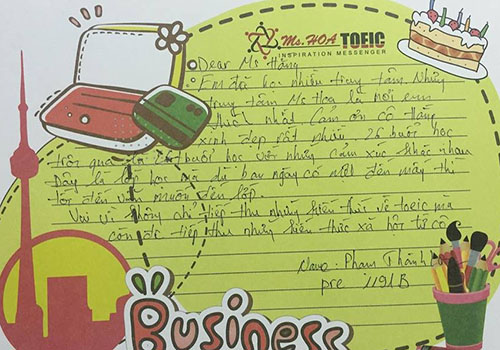 Ms. HOA TOEIC
INSPIRATION MESSENGER
Dear Ms Hằng
Em đã học nhiều trung tâm. Nhưng
trung tâm Ms Hoa là nơi em
thích nhất. Cảm ơn cô Hằng
xinh đẹp rất nhiều. 26 buổi học
trôi qua là 26 buổi học với những cảm xúc khác nhau
Đây là lớp học mà dù ban ngày có mệt đến mấy thì
tối đến vẫn muốn đến lớp.
Vui vì không chỉ tiếp thu những kiến thức về toeic mà
còn để tiếp thu những kiến thức xã hội từ cô
Name: Phạm Thành
pre 1191B
Business